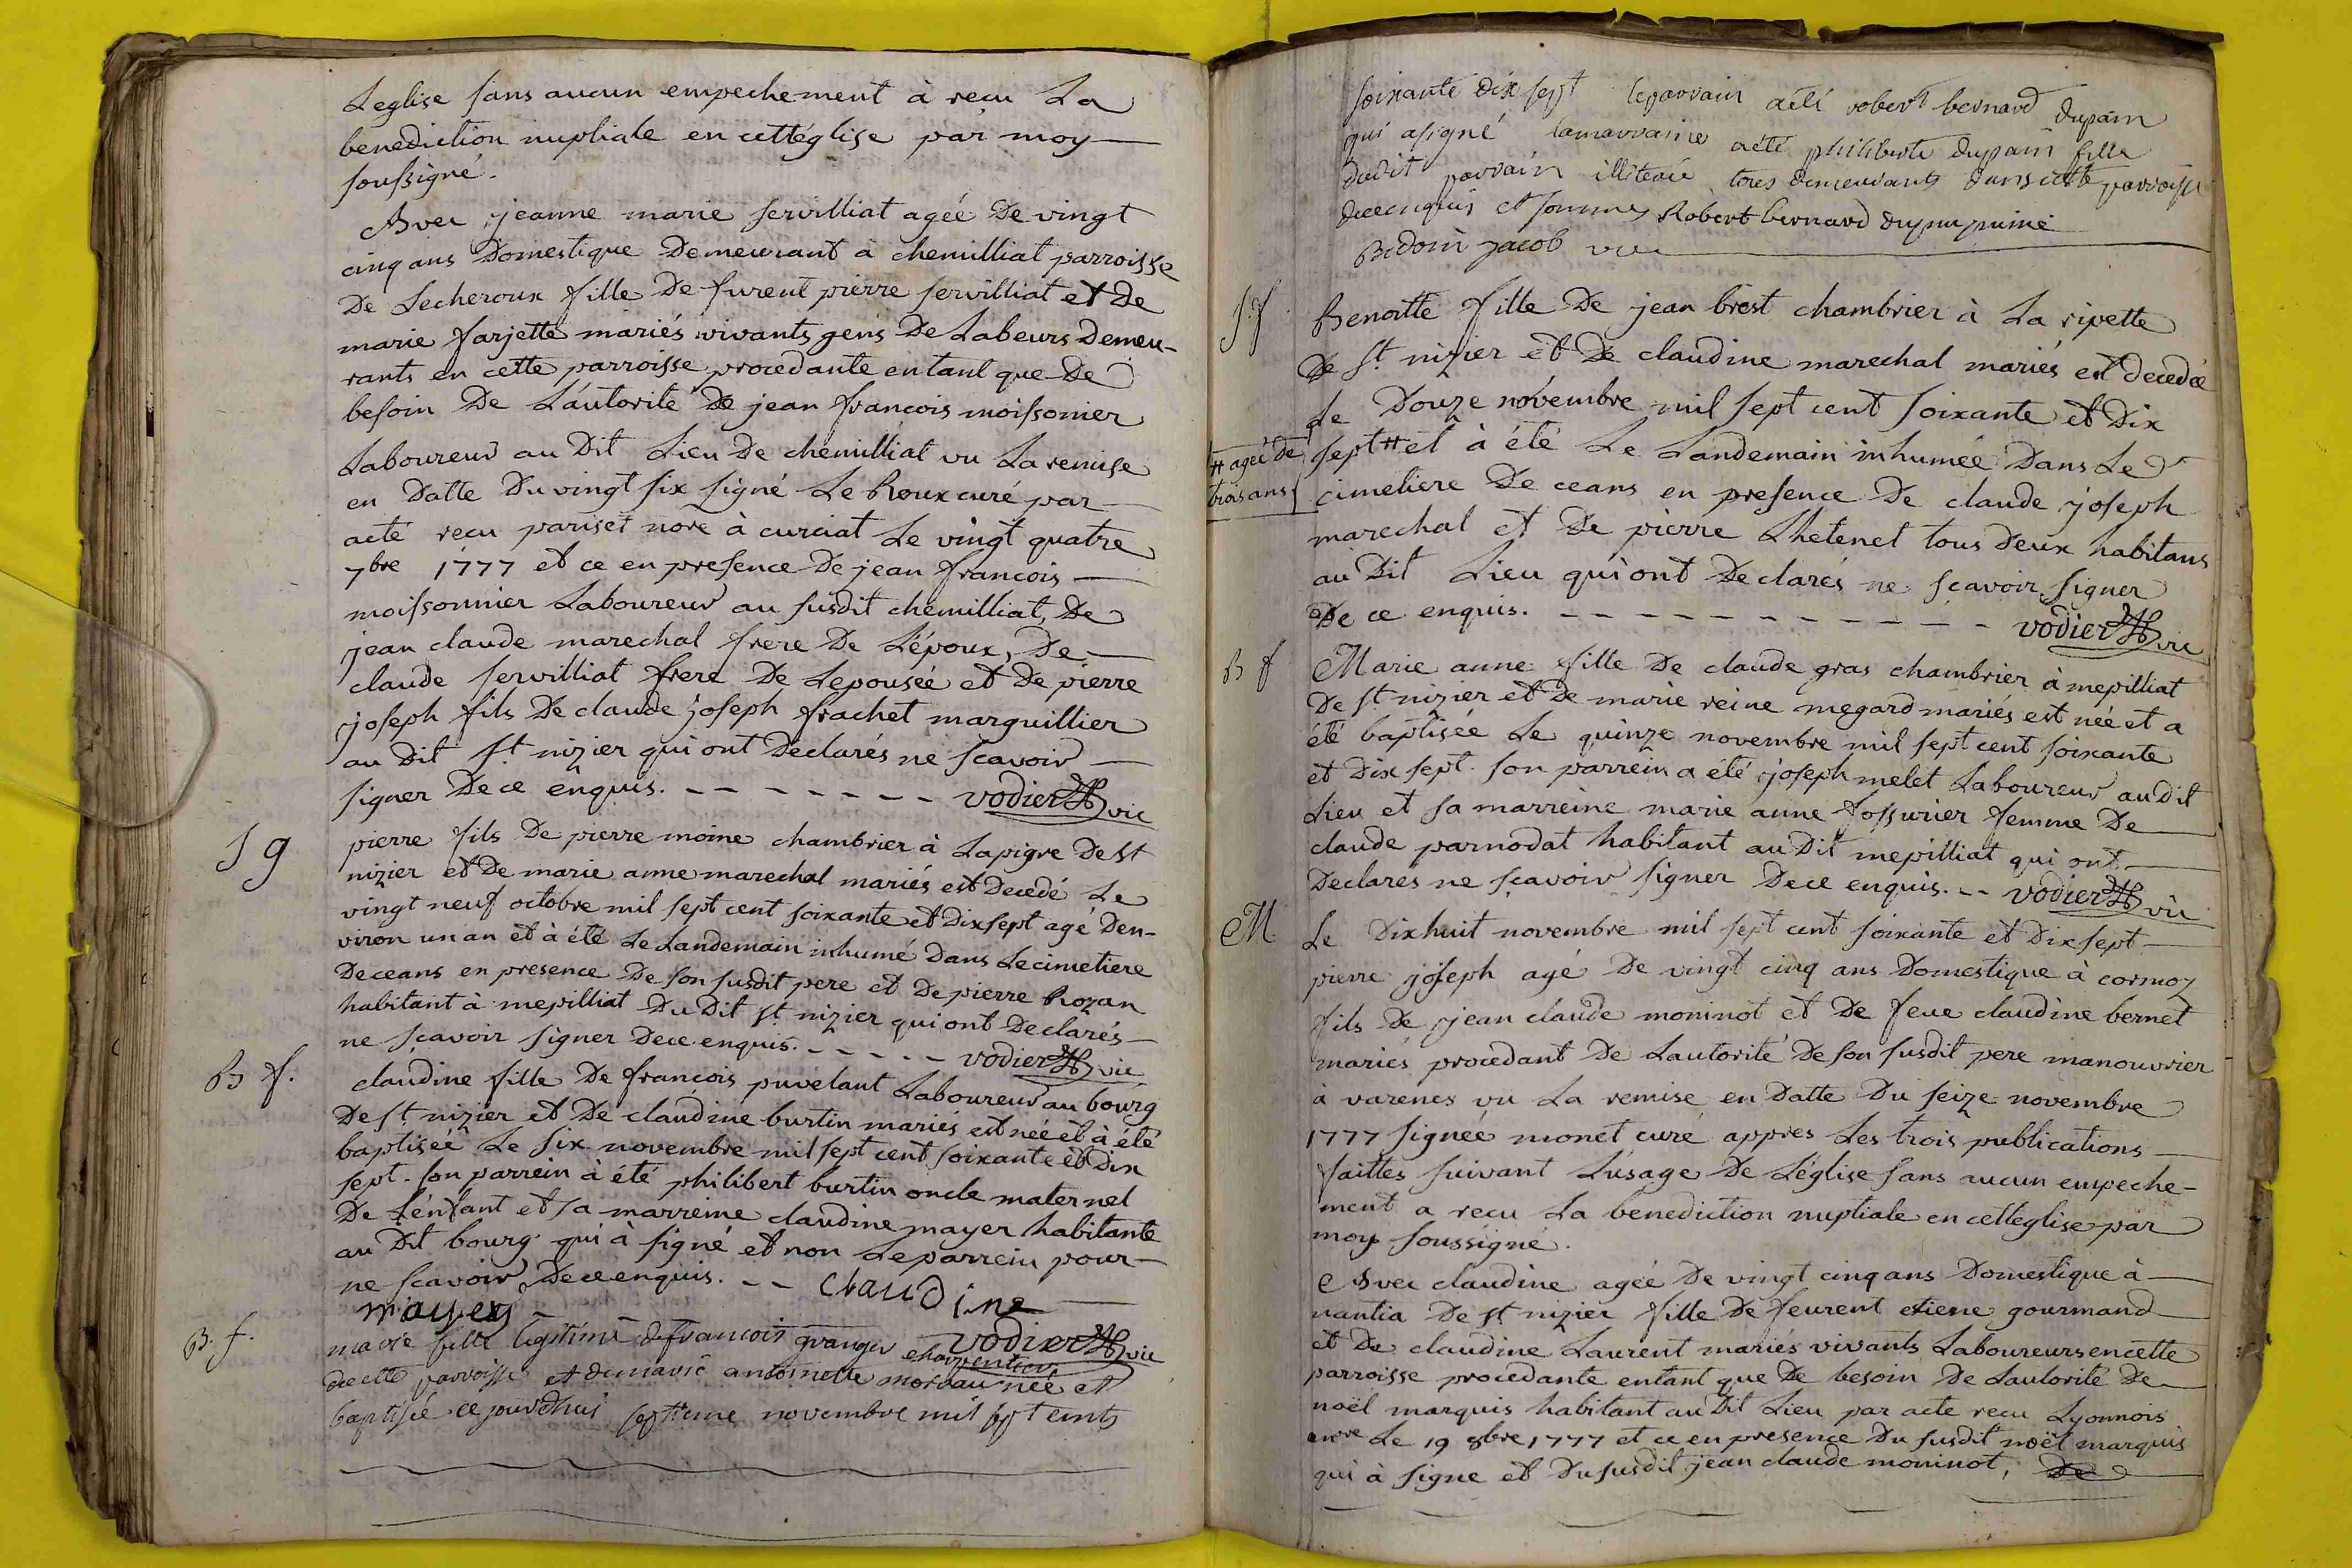 Leglise sans aucun empechement à recu La
benediction nuptiale en cettéglise par moy
soussigné.
Avec jeanne marie servilliat agée De vingt
cinq ans Domestique Demeurant à chemilliat parroisse
De Lecheroux fille De furent pierre servilliat et De
marie farjette mariés vivants gens De Labeurs Demeu-
rants en cette parroisse procedante entant que De
besoin De L'autorité De jean francois moissonier
Laboureur au Dit Lieu De chemilliat vu La remise
en Datte Du vingt six signé Le Roux curé par
acte recu pariset nore à curciat Le vingt quatre
7bre 1777 et ce en presence De jean francois
moissonnier Laboureur au susdit chemilliat, De
jean claude marechal frere De L'époux, De
claude servilliat frere De Lepousée et De pierre
joseph fils De claude joseph frachet marguillier
au Dit St nizier qui ont Declarés ne scavoir
signer De ce enquis. vodier vic
S g
pierre fils De pierre moine chambrier à Lapigre De St
nizier et De marie anne marechal mariés est Decedé Le
vingt neuf octobre mil sept cent soixante et Dixsept agé Den-
viron un an et à été Le Landemain inhumé Dans Le cimetiere
De ceans en presence De son susdit pere et De pierre Rozan
habitant à mepilliat Du Dit St nizier qui ont Declarés
ne scavoir signer Dece enquis. vodier vic
B f.
claudine fille De francois puvelant Laboureur au bourg
De St nizier et De claudine burtin mariés est née et à été
baptisée Le six novembre mil sept cent soixante et Dix
sept. son parrein à été philibert burtin oncle maternel
De L'énfant et sa marreine claudine mayer habitante
au Dit bourg qui à signé et non Le parrein pour
ne scavoir De ce enquis. claudine
mayer
vodier vic
B. f.
marie fille legitime de francois granger charpentier
de cette parroisse et de marie antoinette moreau née et
baptisée ce jourdhui septieme novembre mil sept cents
soixante dix sept le parrain a été robert bernard dupain
qui a signé la marraine a été philiberte dupain fille
dudit parrain illiterée tous demeurants dans cette parroisse
de ce enquis et sommes Robert bernard
Bedoin jacob
S. f
Benoitte fille De jean brest chambrier à La ripette
De St nizier et De claudine marechal mariés est decedée
Le Douze novembre mil sept cent soixante et Dix
sept # et à été Le Landemain inhumée Dans Le
# ageé de
trois ans
cimetiere De ceans en presence De claude joseph
marechal et De pierre Lhetenet tous Deux habitans
au Dit Lieu qui ont Declarés ne scavoir signer
De ce enquis. vodier vic
B f
Marie anne fille De claude gras chambrier à mepilliat
De St nizier et De marie reine megard mariés est née et a
été baptisée Le quinze novembre mil sept cent soixante
et Dix sept. son parrein a été joseph melet Laboureur au Dit
Lieu et sa marreine marie anne fossurier femme De
claude parnodat habitant au Dit mepilliat qui ont
Declares ne scavoir signer Dece enquis. vodier vic
M
Le Dixhuit novembre mil sept cent soixante et Dixsept
pierre joseph agé De vingt cinq ans Domestique à cormoz
fils De jean claude moninot et De feue claudine bernet
mariés procedant De Lautorité De son susdit pere manouvrier
à varenes vu La remise en Datte Du seize novembre
1777 signée monet curé appres Les trois publications
faittes suivant L'usage De L'église sans aucun empeche-
ment a recu La benediction nuptiale en cetteglise par
moy soussigné.
Avec claudine agée De vingt cinq ans Domestique à
nantia De St nizier fille De feurent etiene gourmand
et De claudine Laurent mariés vivants Laboureurs encette
parroisse procedante entant que De besoin De Lautorité De
noël marquis habitant au Dit Lieu par acte recu Lyonnois
nore Le 19 8bre 1777 et ce en presence Du susdit noël marquis
qui à signe et Du susdit jean claude moninot,